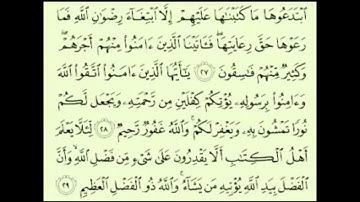 ٱبْتَدَعُوهَا مَا كَتَبْنَٰهَا عَلَيْهِمْ إِلَّا ٱبْتِغَآءَ رِضْوَٰنِ ٱللَّهِ فَمَا
رَعَوْهَا حَقَّ رِعَايَتِهَا ۖ فَـَٔاتَيْنَا ٱلَّذِينَ ءَامَنُوا۟ مِنْهُمْ أَجْرَهُمْ ۖ
وَكَثِيرٌ مِّنْهُمْ فَٰسِقُونَ ٢٧ يَٰٓأَيُّهَا ٱلَّذِينَ ءَامَنُوا۟ ٱتَّقُوا۟ ٱللَّهَ
وَءَامِنُوا۟ بِرَسُولِهِۦ يُؤْتِكُمْ كِفْلَيْنِ مِن رَّحْمَتِهِۦ وَيَجْعَل لَّكُمْ
نُورًا تَمْشُونَ بِهِۦ وَيَغْفِرْ لَكُمْ ۚ وَٱللَّهُ غَفُورٌ رَّحِيمٌ ٢٨ لِّئَلَّا يَعْلَمَ
أَهْلُ ٱلْكِتَٰبِ أَلَّا يَقْدِرُونَ عَلَىٰ شَىْءٍ مِّن فَضْلِ ٱللَّهِ ۙ وَأَنَّ
ٱلْفَضْلَ بِيَدِ ٱللَّهِ يُؤْتِيهِ مَن يَشَآءُ ۚ وَٱللَّهُ ذُو ٱلْفَضْلِ ٱلْعَظِيمِ ٢٩